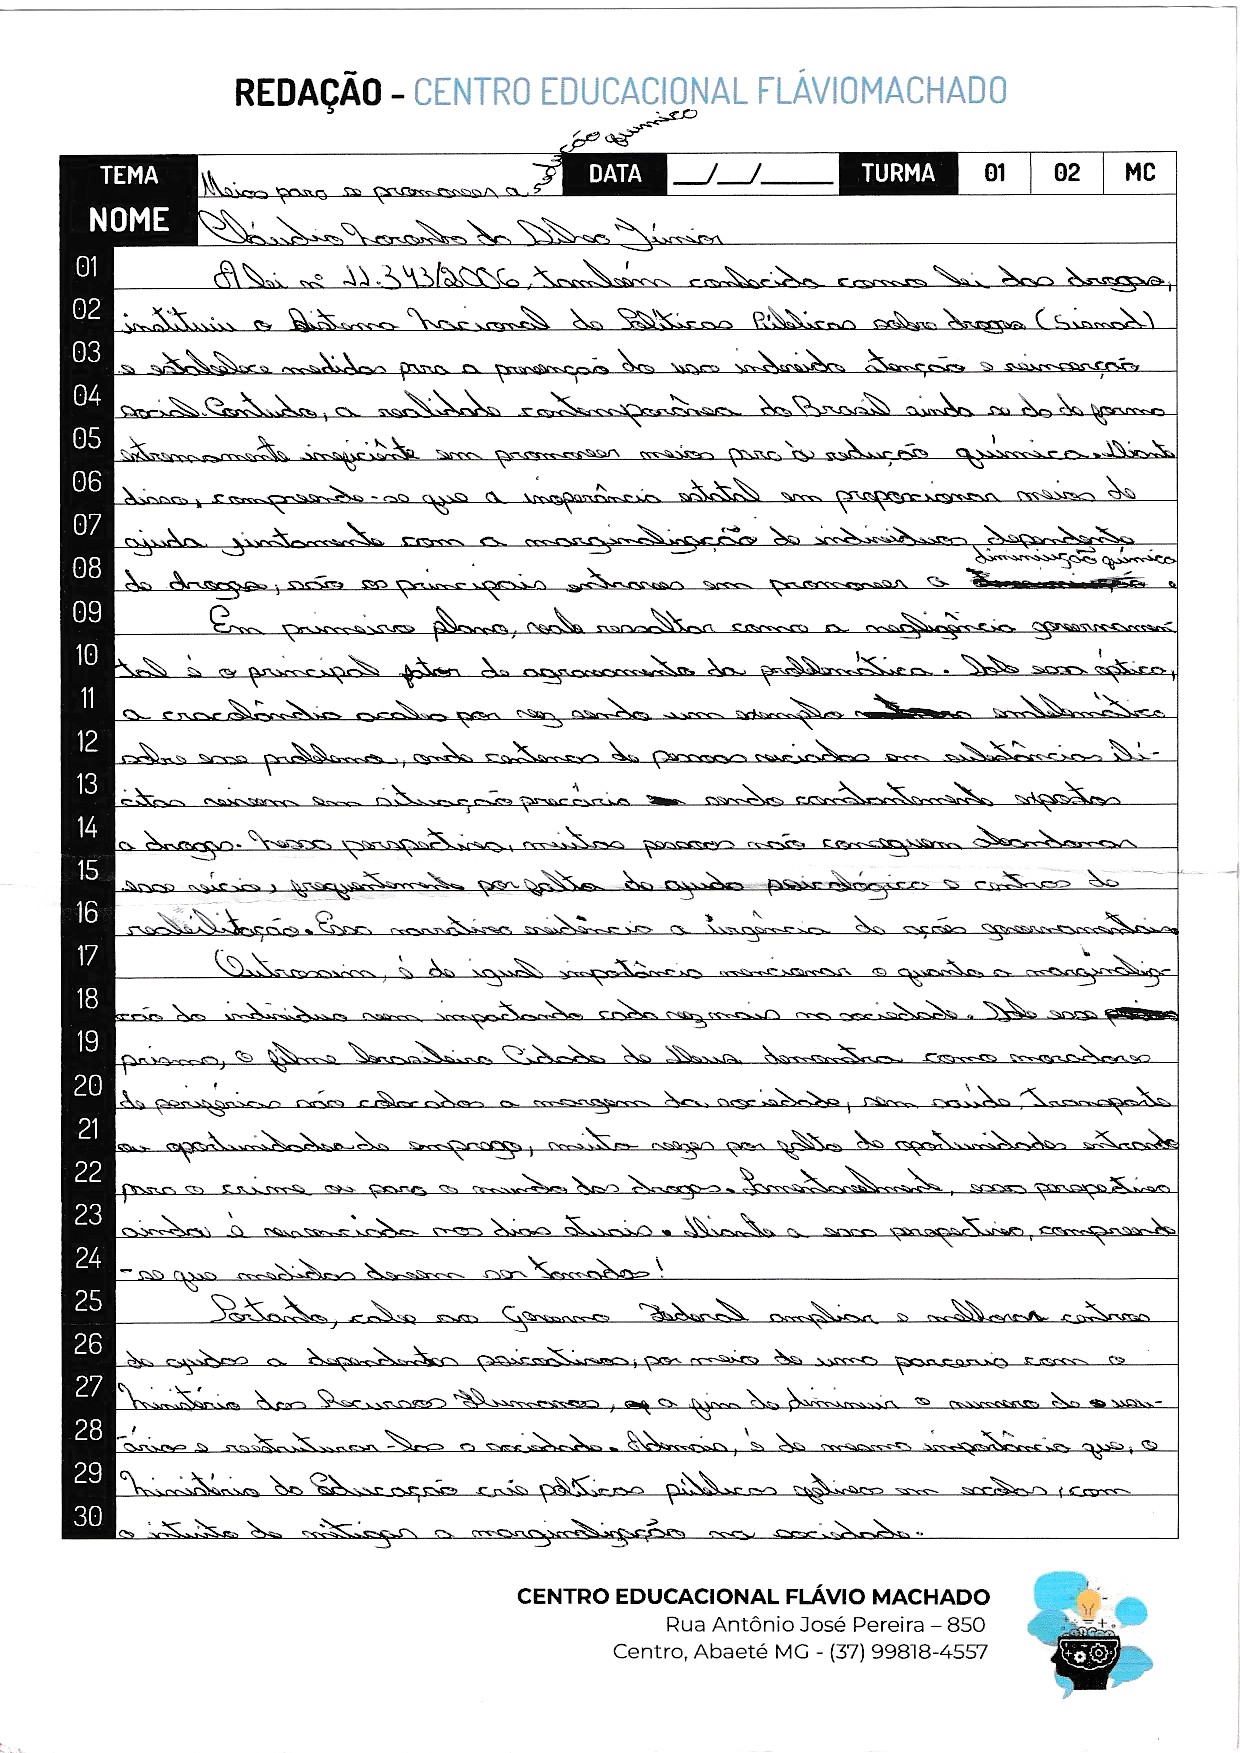 REDAÇÃO - CENTRO EDUCACIONAL FLÁVIOMACHADO
TEMA Meios para se promover a redução química DATA __/__/____ TURMA 01 02 MC
NOME Cláudio Noronha da Silva Júnior
01 A lei nº 11.343/2006, também conhecida como lei das drogas,
02 instituiu o Sistema Nacional de Políticas Públicas sobre drogas (Sisnad)
03 e estabelece medidas para a prevenção do uso indevido atenção e reincerção
04 social. Contudo, a realidade contemporânea do Brasil ainda se da de forma
05 extremamente ineficiênte em promover meios para à redução química. Diante
06 disso, compreende-se que a inoperância estatal em proporcionar meios de
07 ajuda juntamente com a marginalização de indivíduos dependente
08 de drogas, são os principais entraves em promover a diminuição química.
09 Em primeiro plano, vale ressaltar como a negligência governamen
10 tal é o principal fator de agravamento da problemática. Sob essa óptica,
11 a cracolândia acaba por vez sendo um exemplo emblemático
12 sobre esse problema, onde centenas de pessoas viciadas em substâncias ilí-
13 citas vivem em situação precária sendo constantemente expostas
14 a drogas. Nessa perspectiva, muitas pessoas não conseguem abandonar
15 esse vício, frequentemente por falta de ajuda psicológica e centros de
16 reabilitação. Essa narrativa evidência a urgência de ações governamentais.
17 Outrossim, é de igual importância mencionar o quanto a marginaliza-
18 ção do indivíduo vem impactando cada vez mais na sociedade. Sob esse
19 prisma, o filme brasileiro Cidade de Deus demonstra como moradores
20 de periférias são colocados a margem da sociedade, sem saúde, transporte
21 ou oportunidades de emprego, muita vezes por falta de oportunidades entrando
22 para o crime ou para o mundo das drogas. Lamentavelmente, essa perspectiva
23 ainda é vivenciada nos dias atuais. Diante a essa perspectiva, compreende
24 -se que medidas devem ser tomadas!
25 Portanto, cabe ao Governo Federal ampliar e melhorar centros
26 de ajudas a dependentes psicoativos, por meio de uma parceria com o
27 Ministério dos Recursos Humanos, a fim de diminuir o numero de usu-
28 ários e reestruturar-los a sociedade. Ademais, é de mesma importância que, o
29 Ministério da Educação crie políticas públicas efetivas em escolas, com
30 o intuito de mitigar a marginalização na sociedade.
CENTRO EDUCACIONAL FLÁVIO MACHADO
Rua Antônio José Pereira – 850
Centro, Abaeté MG - (37) 99818-4557